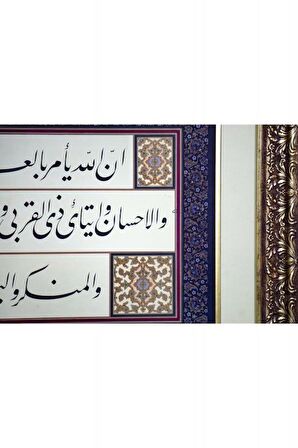 ان الله يأمر بالعـ
والاحسان وايتائ ذى القربى و
والمنكر والبـ